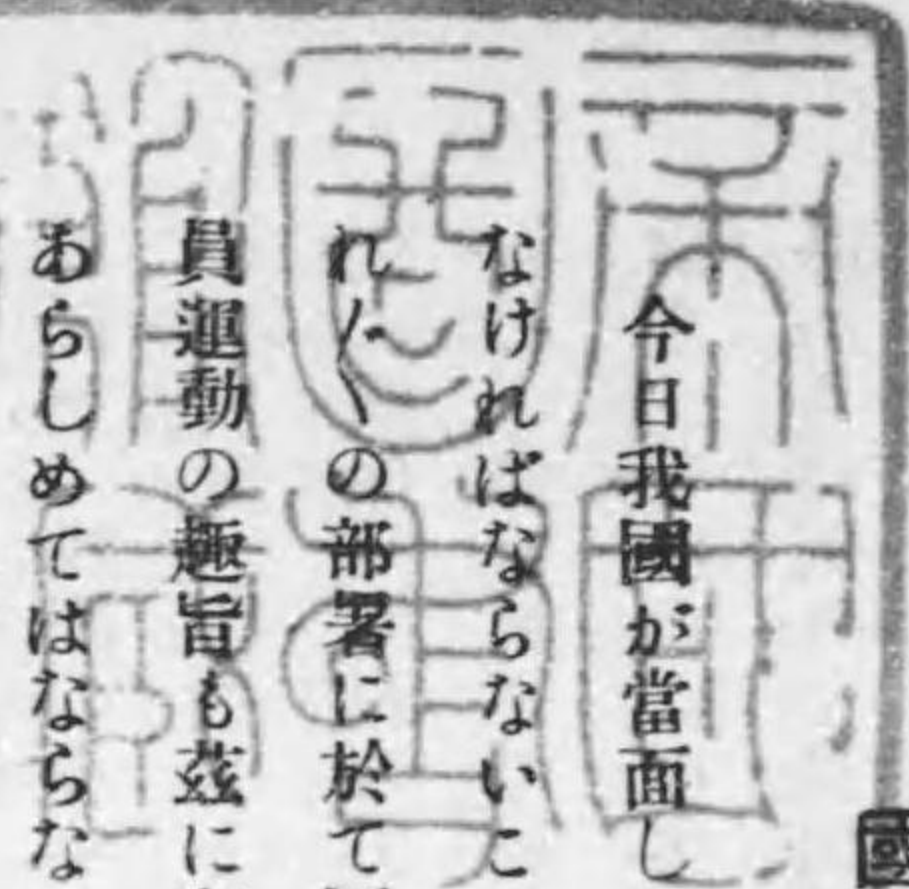 今日我國が當面し
なければならないこ
れ〴〵の部署に於て
員運動の趣旨も茲に
あらしめてはならな
國